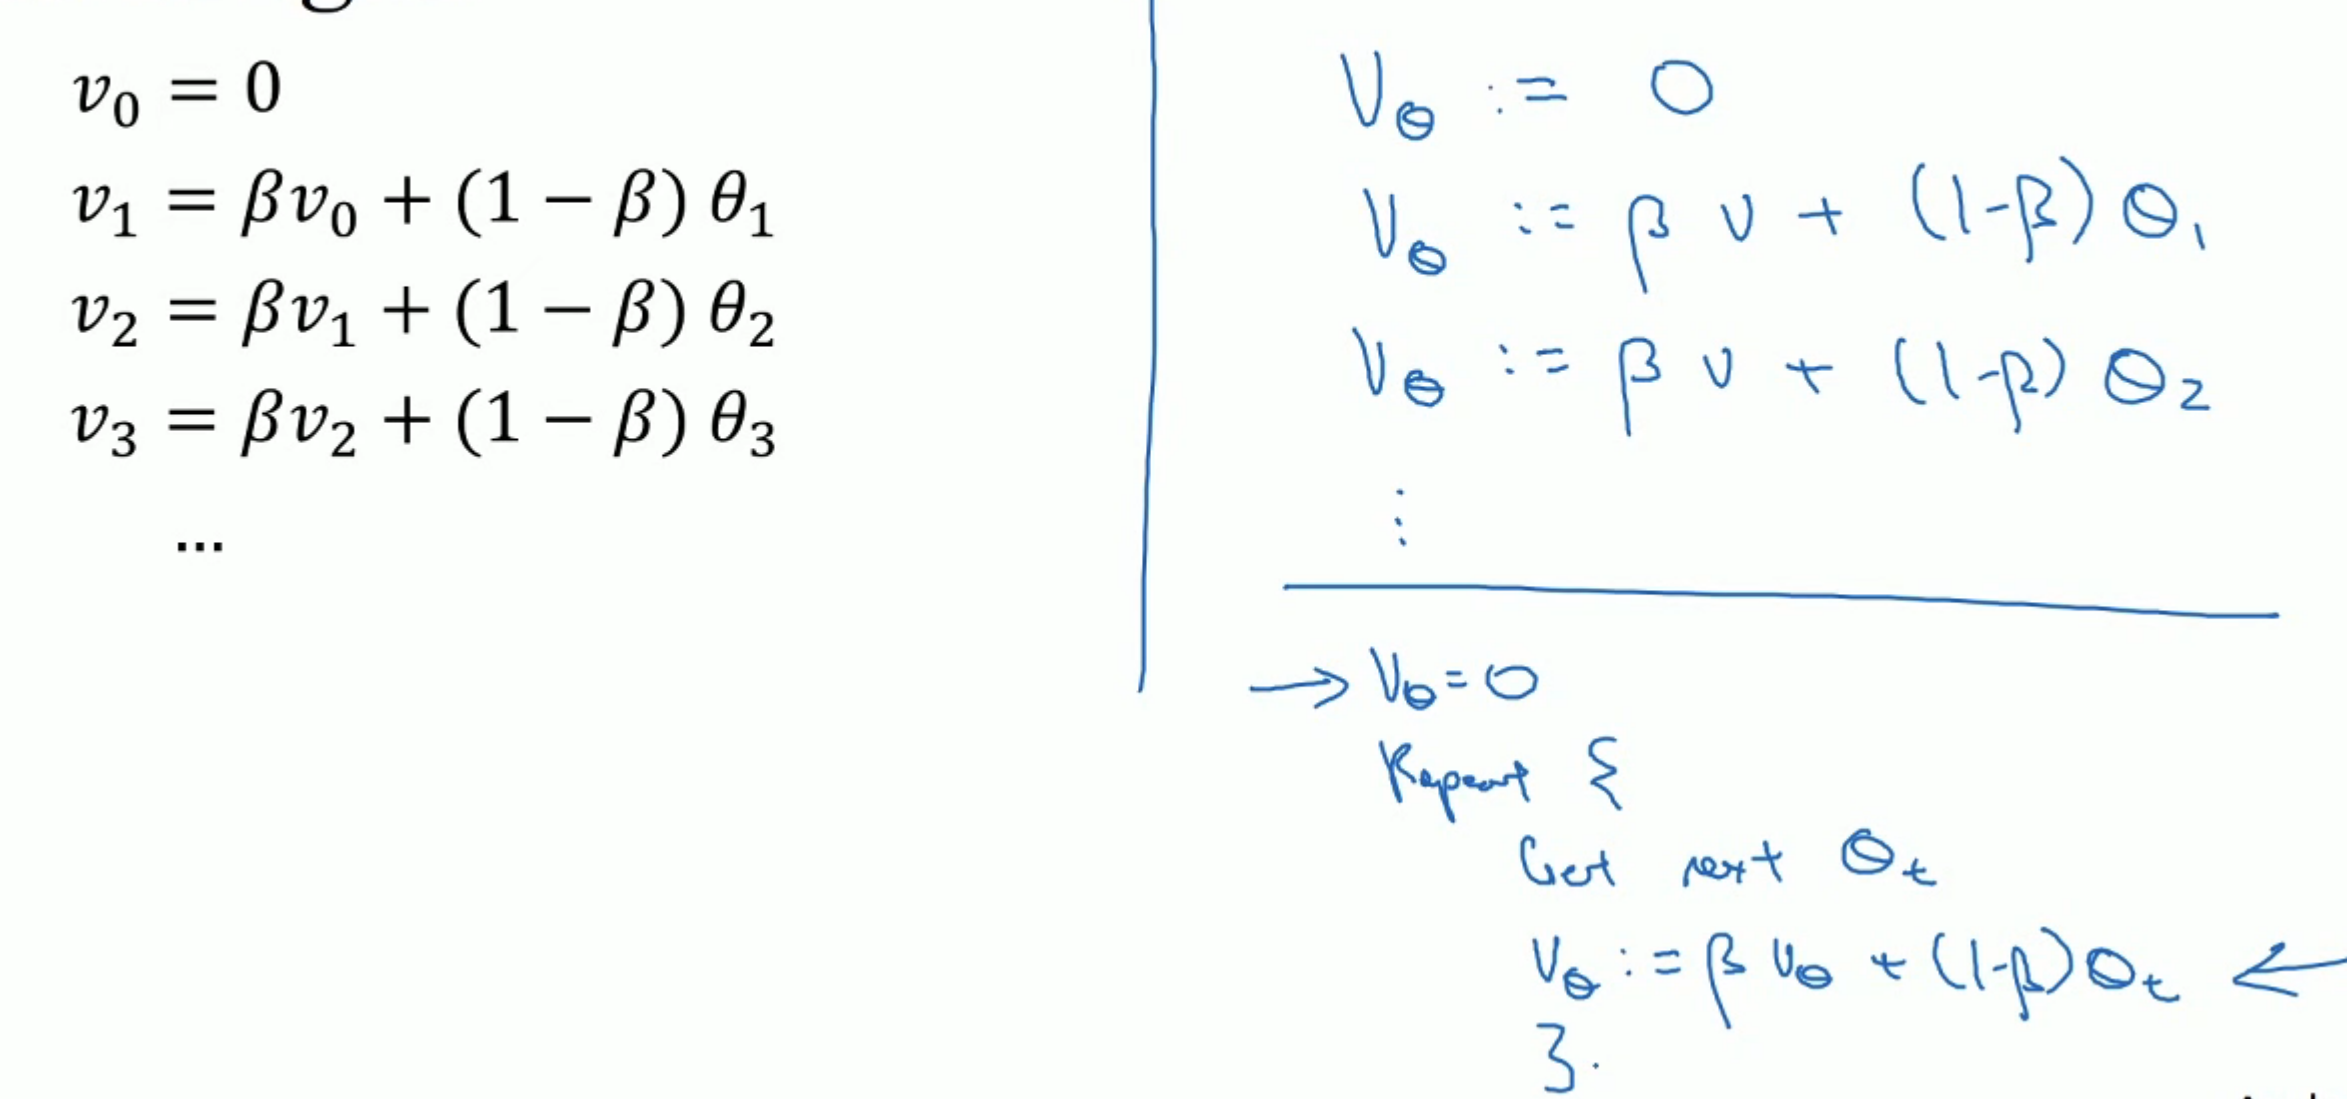 v₀ = 0
v₁ = βv₀ + (1 − β) θ₁
v₂ = βv₁ + (1 − β) θ₂
v₃ = βv₂ + (1 − β) θ₃
...
V_θ := 0
V_θ := β v + (1-β) θ₁
V_θ := β v + (1-β) θ₂
⋮
→ V_θ = 0
Repeat {
Get next θ_t
V_θ := β V_θ + (1-β) θ_t ←
}.